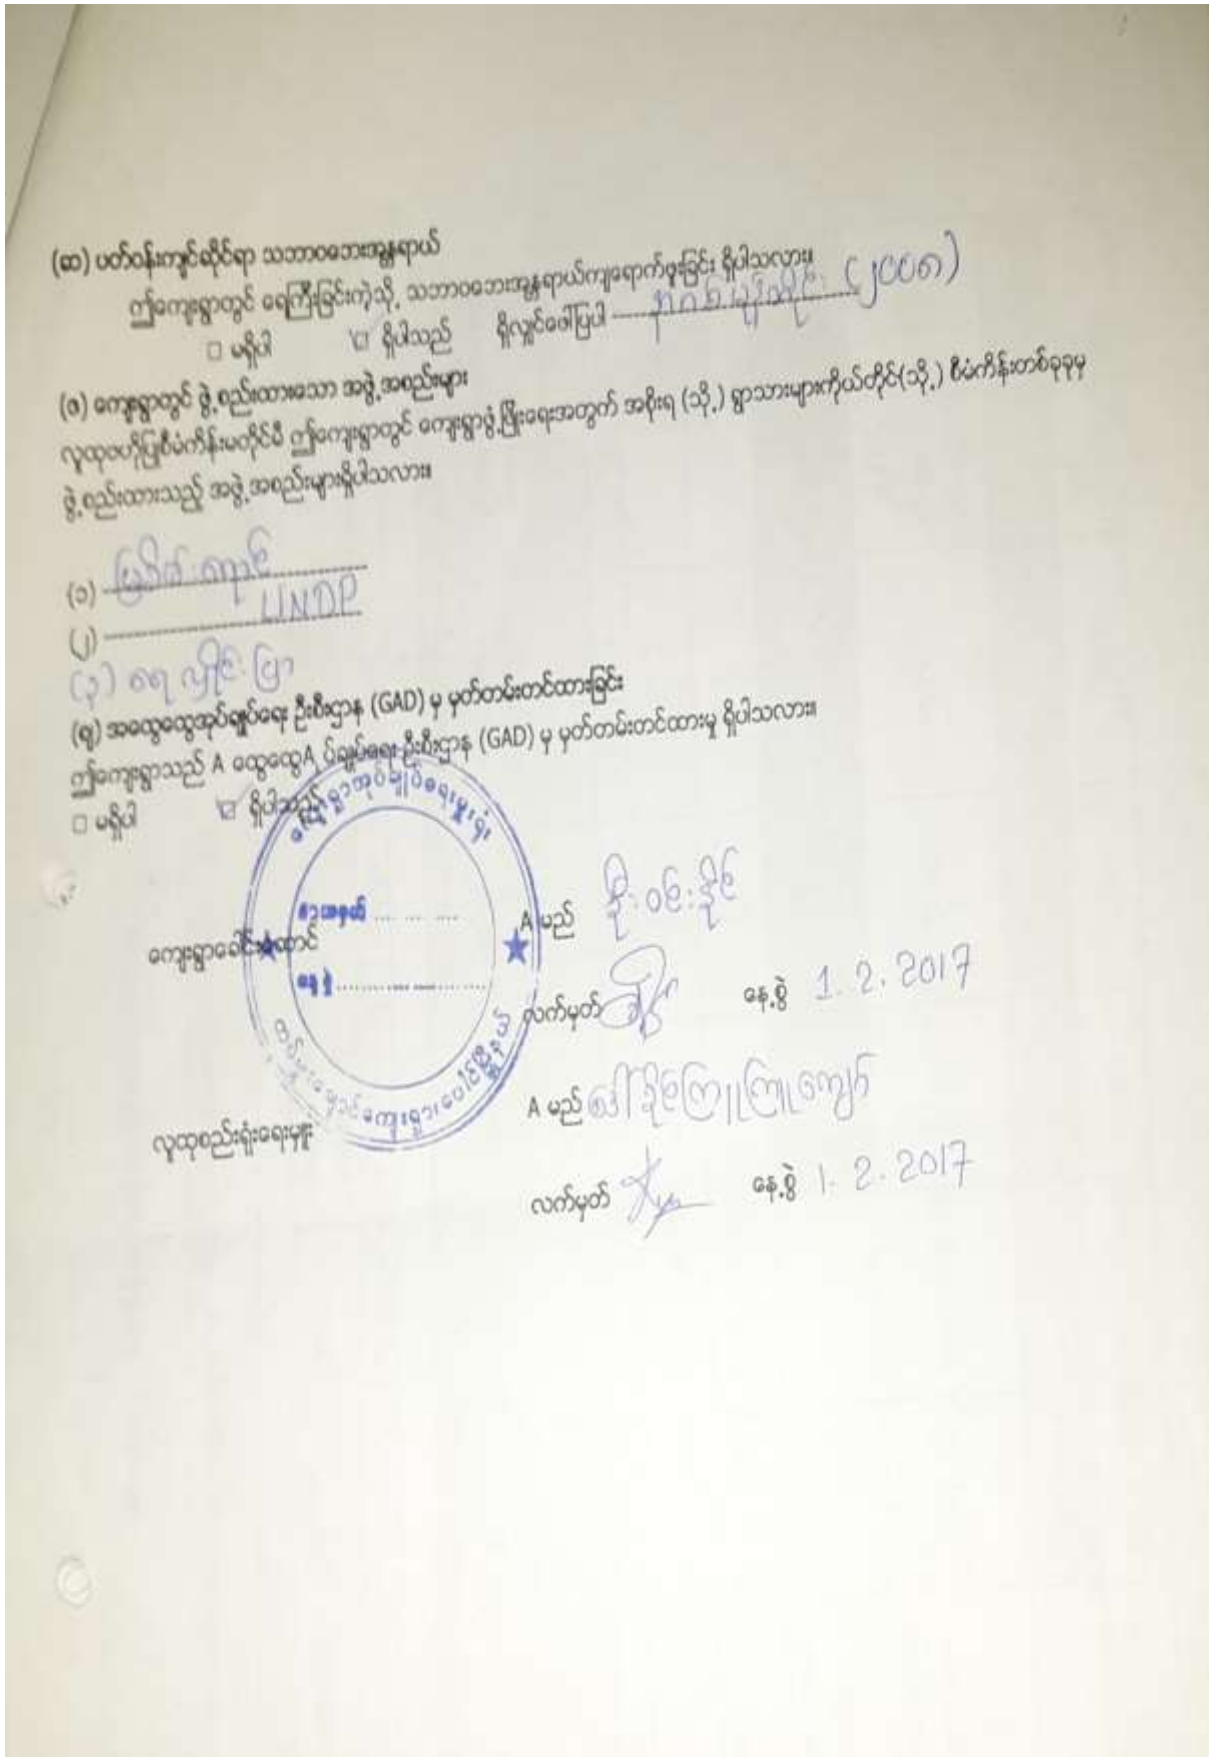 (ဆ) ပတ်ဝန်းကျင်ဆိုင်ရာ သဘာဝဘေးအန္တရာယ်
ဤကျေးရွာတွင် ရေကြီးခြင်းကဲ့သို့ သဘာဝဘေးအန္တရာယ်ကျရောက်ဖူးခြင်း ရှိပါသလား။
□ မရှိပါ ☑ ရှိပါသည် ရှိလျှင်ဖော်ပြပါ နာဂစ်မုန်တိုင်း (၂၀၀၈)
(ဇ) ကျေးရွာတွင် ဖွဲ့စည်းထားသော အဖွဲ့အစည်းများ
လူထုဗဟိုပြုစီမံကိန်းမတိုင်မီ ဤကျေးရွာတွင် ကျေးရွာဖွံ့ဖြိုးရေးအတွက် အစိုးရ (သို့) ရွာသားများကိုယ်တိုင်(သို့) စီမံကိန်းတစ်ခုခုမှ
ဖွဲ့စည်းထားသည့် အဖွဲ့အစည်းများရှိပါသလား။
(၁) မြစိမ်းရောင်
(၂) UNDP
(၃) ရေလှိုင်းပြာ
(ဈ) အထွေထွေအုပ်ချုပ်ရေး ဦးစီးဌာန (GAD) မှ မှတ်တမ်းတင်ထားခြင်း
ဤကျေးရွာသည် A ထွေထွေA ုပ်ချုပ်ရေး ဦးစီးဌာန (GAD) မှ မှတ်တမ်းတင်ထားမှု ရှိပါသလား။
□ မရှိပါ ☑ ရှိပါသည်
ကျေးရွာအုပ်ချုပ်ရေးမှူးရုံး
စာအမှတ်
နေ့စွဲ
ကျေးရွာခေါင်းဆောင်
A မည် ဦးဝင်းနိုင်
လက်မှတ် နေ့စွဲ 1.2.2017
လူထုစည်းရုံးရေးမှူး
A မည် ဒေါ်ခိုင်ကြူကြူကျော်
လက်မှတ် နေ့စွဲ 1.2.2017